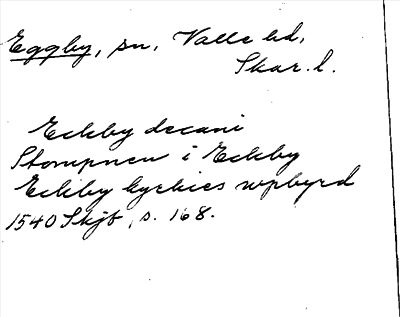 Eggby, sn, Valle hd,
Skar. l.
Eckby decani
Stompnen i Eckby
Eckby kyrkies wpbyrd
1540 Skjb, s. 168.